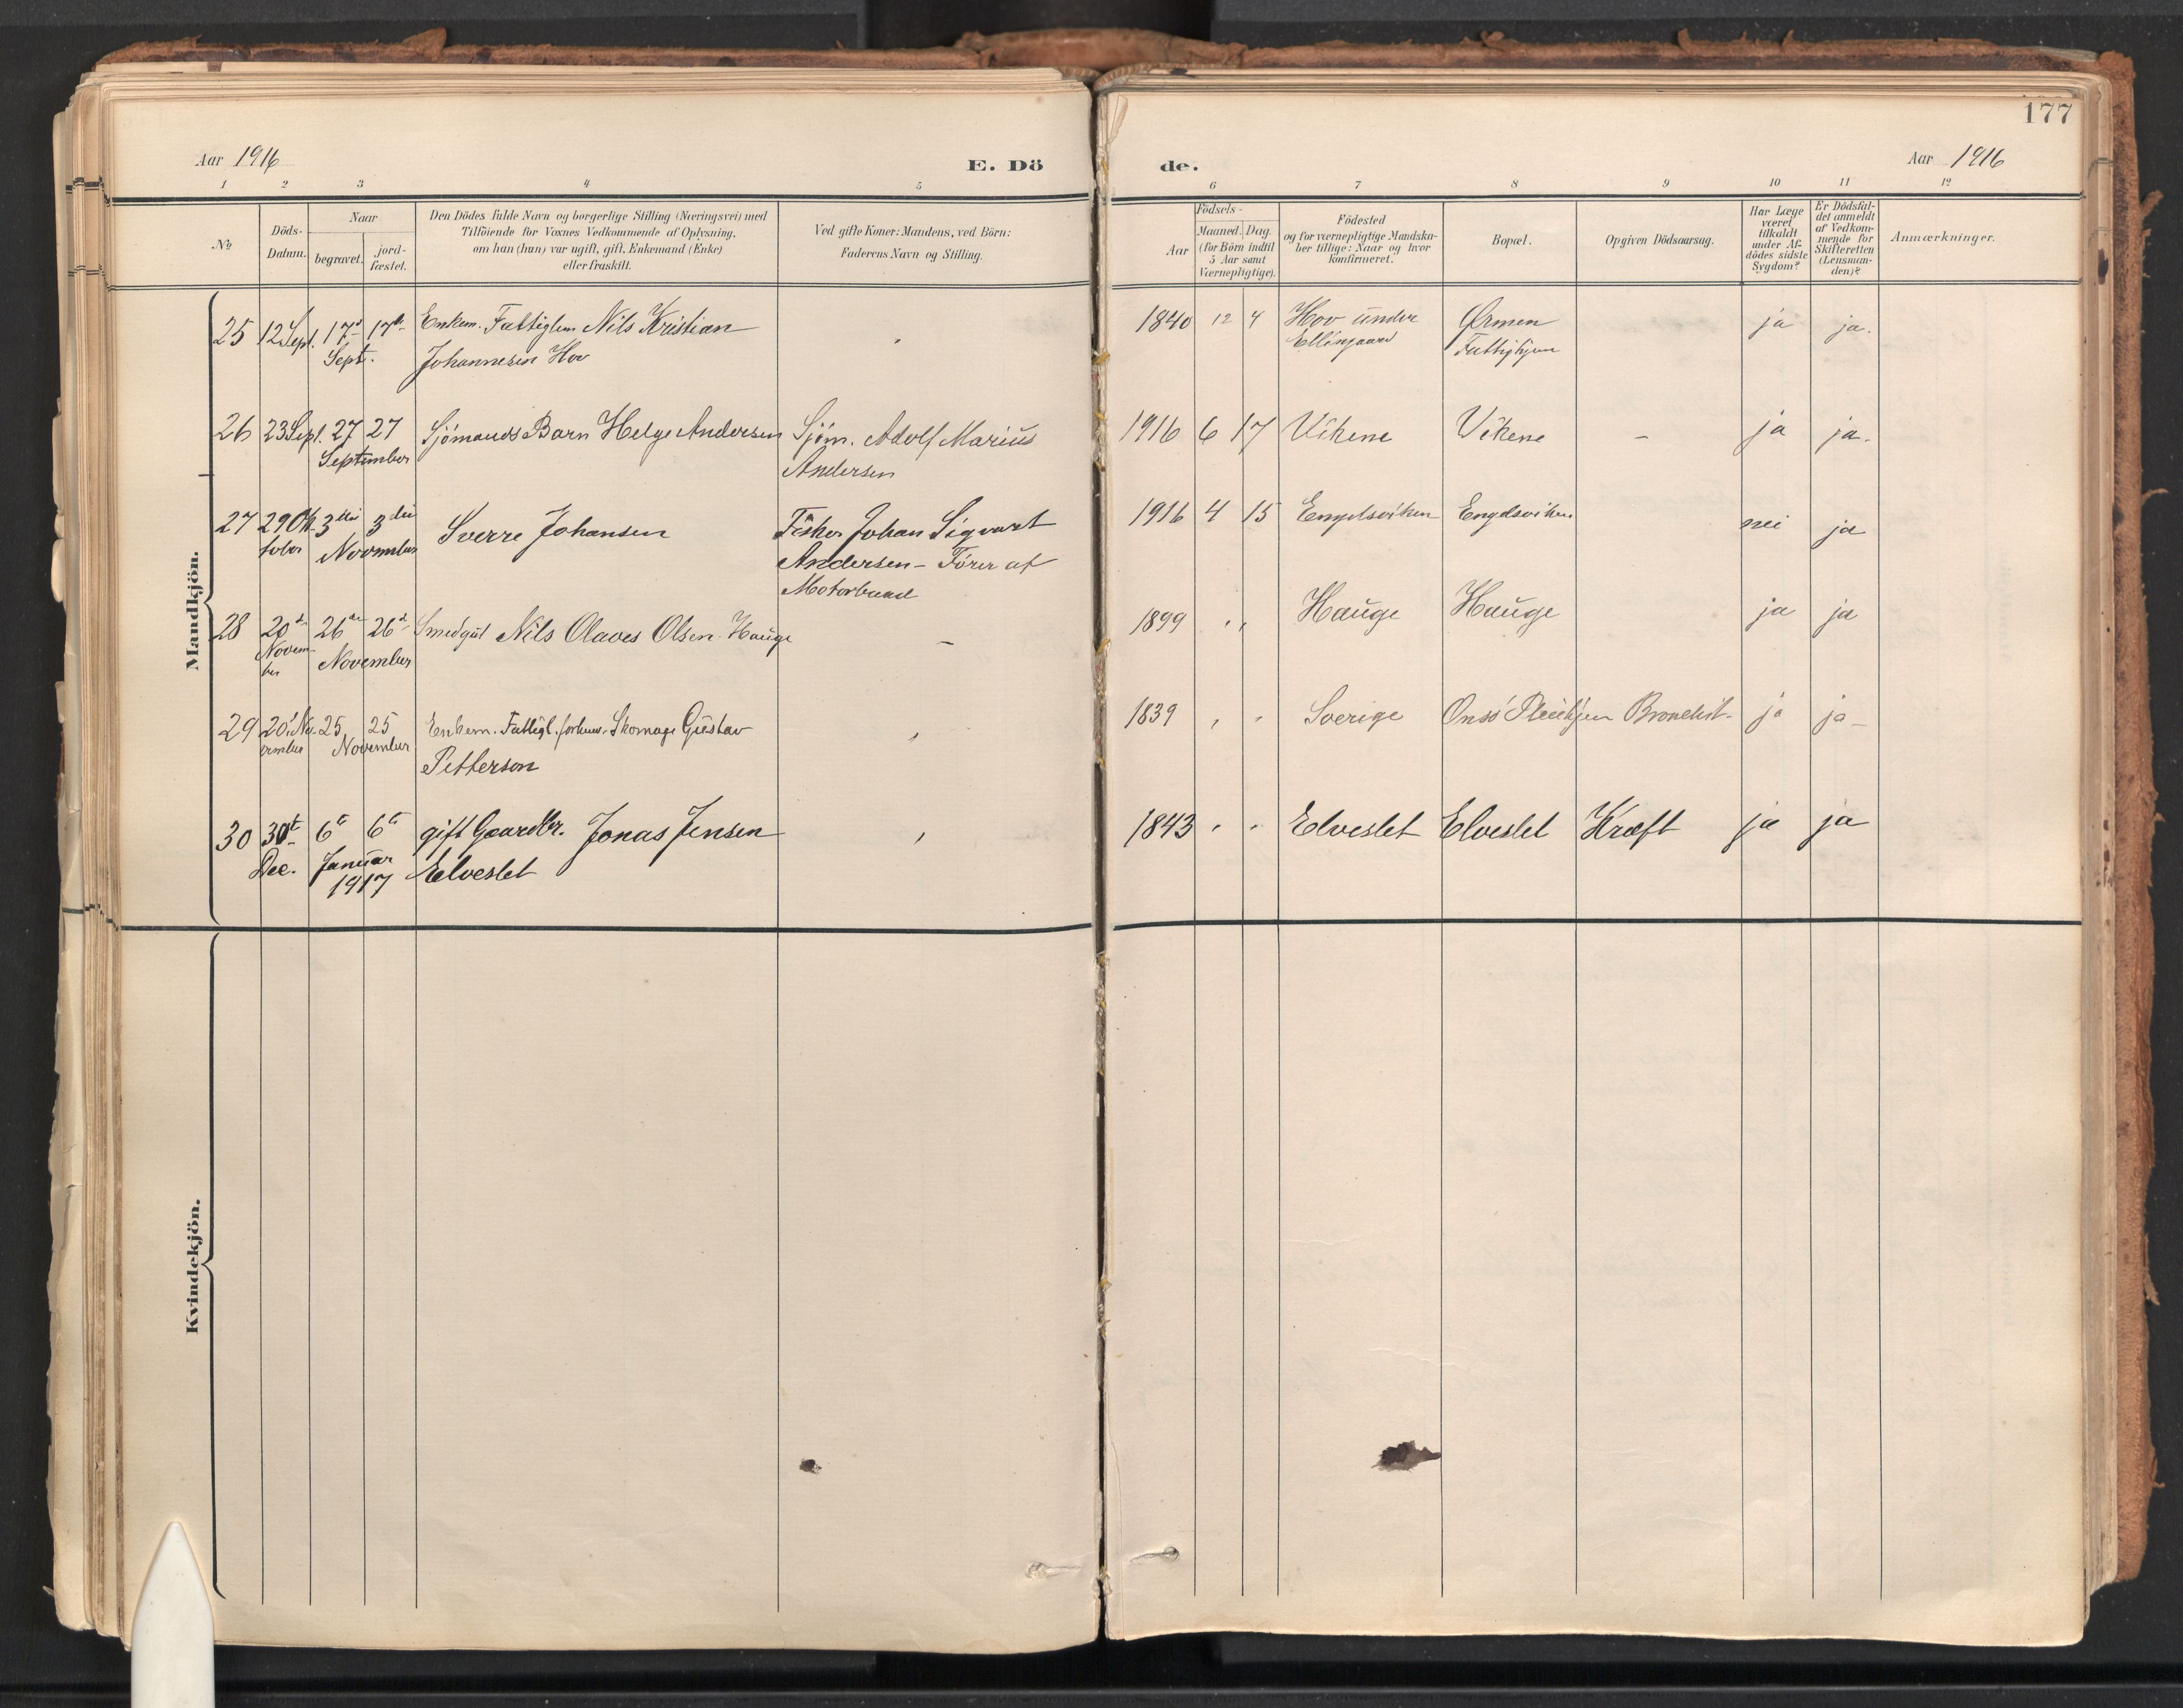 177
Aar 1916
E. Dö
de.
Aar 1916
1 2 3 4 5 6 7 8 9 10 11 12
No
Döds-
Datum.
Naar
begravet.
jord-
fæstet.
Den Dödes fulde Navn og borgerlige Stilling (Næringsvei) med
Tilföiende for Voxnes Vedkommende af Oplysning,
om han (hun) var ugift, gift, Enkemand (Enke)
eller fraskilt.
Ved gifte Koner: Mandens, ved Börn:
Faderens Navn og Stilling.
Födsels-
Aar
Maaned. Dag.
(for Börn indtil
5 Aar samt
Værnepligtige).
Födested
og for værnepligtige Mandska-
ber tillige: Naar og hvor
konfirmeret.
Bopæl.
Opgiven Dödsaarsag.
Har Læge
været
tilkaldt
under Af-
dödes sidste
Sygdom?
Er Dödsfal-
det anmeldt
af Vedkom-
mende for
Skifteretten
(Lensman-
den)?
Anmærkninger.
Mandkjön.
25 12 Sept. 17d 17de Enkem. Fattiglem Nils Kristian 1840 12 4 Hov under Ørmen ja ja.
Sept. Johannesen Hov Ellingaard Fattighjem
26 23 Sept. 27 27 Sjömands Barn Helge Andersen Sjöm. Adolf Marius 1916 6 17 Vikene Vikene - ja ja.
September Andersen
27 29 Ok- 3die 3die Sverre Johansen Fisker Johan Sigvart 1916 4 15 Engelsviken Engelsviken nei ja
tober November Andersen - Fører af
Motorbaad
28 20d 26de 26d Smedgut Nils Olaves Olsen Hauge - 1899 " " Hauge Hauge ja ja
Novem-
ber November
29 20 No- 25 25 Enkem. Fattigl. forhenv. Skomager Gustav 1839 " " Sverige Onsö Pleiehjem Bronchit- ja ja-
vember November
Petterson
30 30t 6te 6te gift Gaardbr. Jonas Jensen 1843 " " Elveslet Elveslet Kræft ja ja
Dec. Januar Elveslet
1917
Kvindekjön.